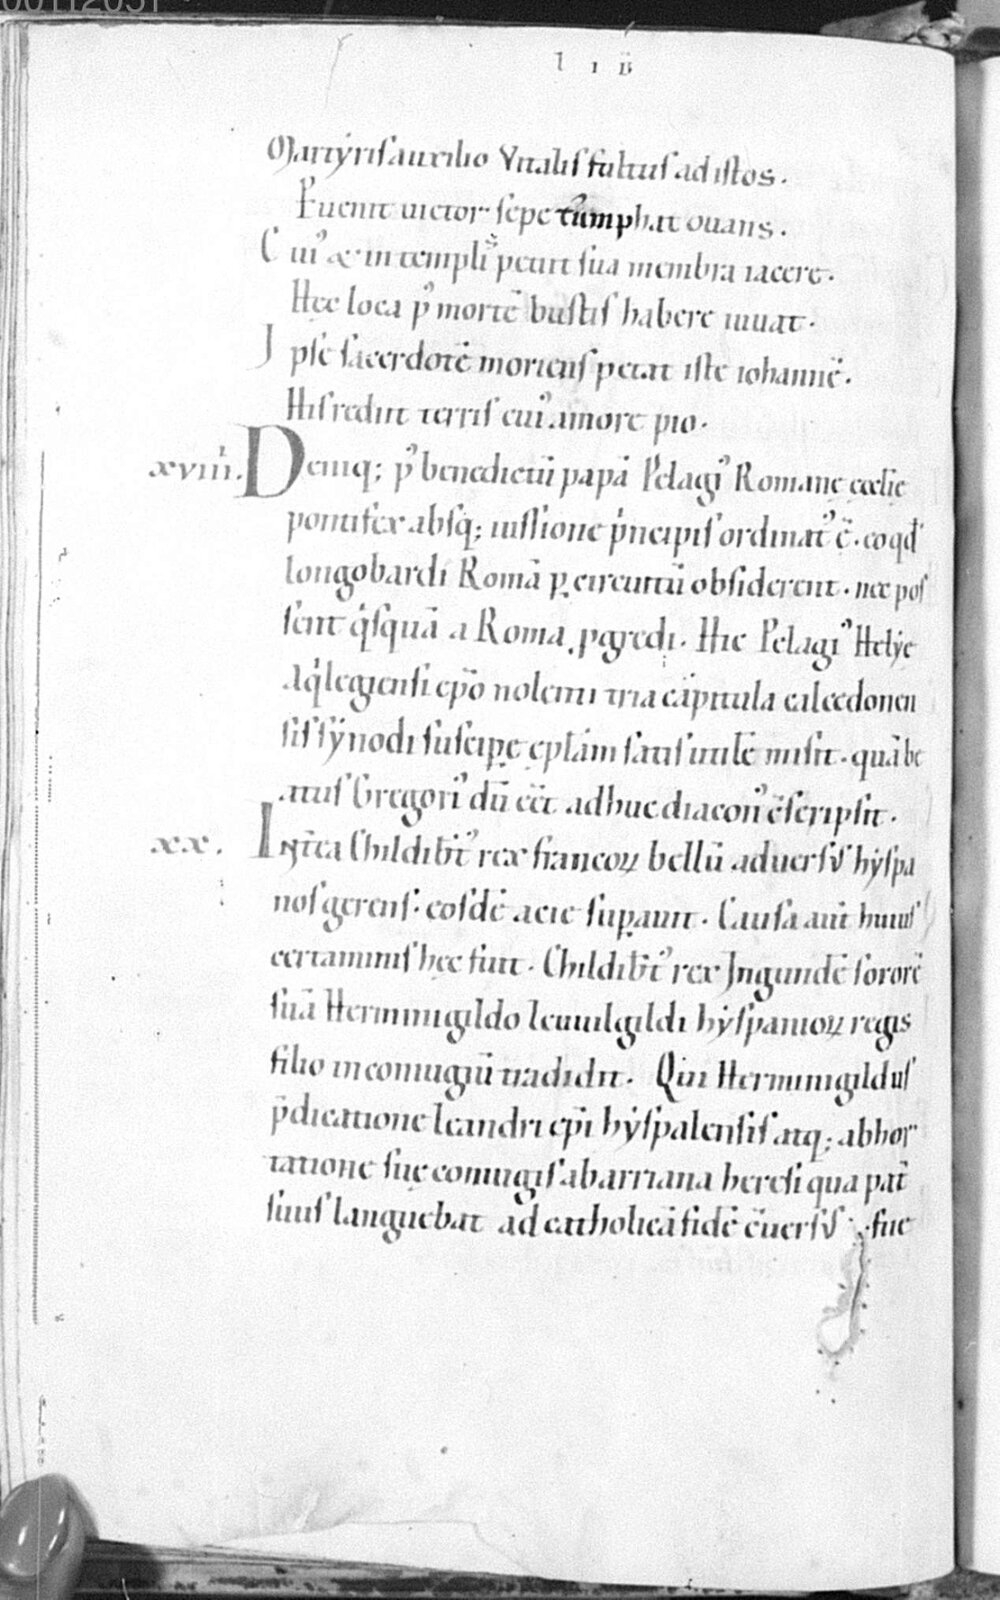 00112051
l i b̄
Martẏris auxilio Vitalis fultus ad istos.
Puenit uictor sepe t'umphat ouans.
Cui' & in templis petiit sua membra iacere.
Hęc loca p' mortē bustis habere iuuat.
Ipse sacerdotē moriens petat iste iohannē.
His rediit terris cui' amore pio.
xviiii. Deniq; p' benedictū papā Pelagi' Romanę ecclie
pontifex absq; iussione p'ncipis ordinat' ē. eo qd'
longobardi Romā p circuitū obsiderent. nec pos
sent q'squā a Roma pgredi. Hic Pelagi' Helẏe
Aq'legiensi epō nolenti tria capitula calcedonen
sis sẏnodi suscipe eplām satis utilē misit. quā be
atus Gregori' dū eēt adhuc diacon' c̄scripsit.
xx. Intea Childibt' rex francoꝝ bellū aduersus hẏspa
nos gerens. eosdē acie supauit. Causa aut̄ huius
certaminis hęc fuit. Childibt' rex Ingundē sororē
suā Herminigildo leuuilgildi hẏspanioꝝ regis
filio in coniugiū tradidit. Qui Herminigildus
p̄dicatione leandri epī hẏspalensis atq; adhor
tatione suę coniugis ab arriana heresi qua pat̄
suus languebat ad catholicā fidē c̄uersus fue